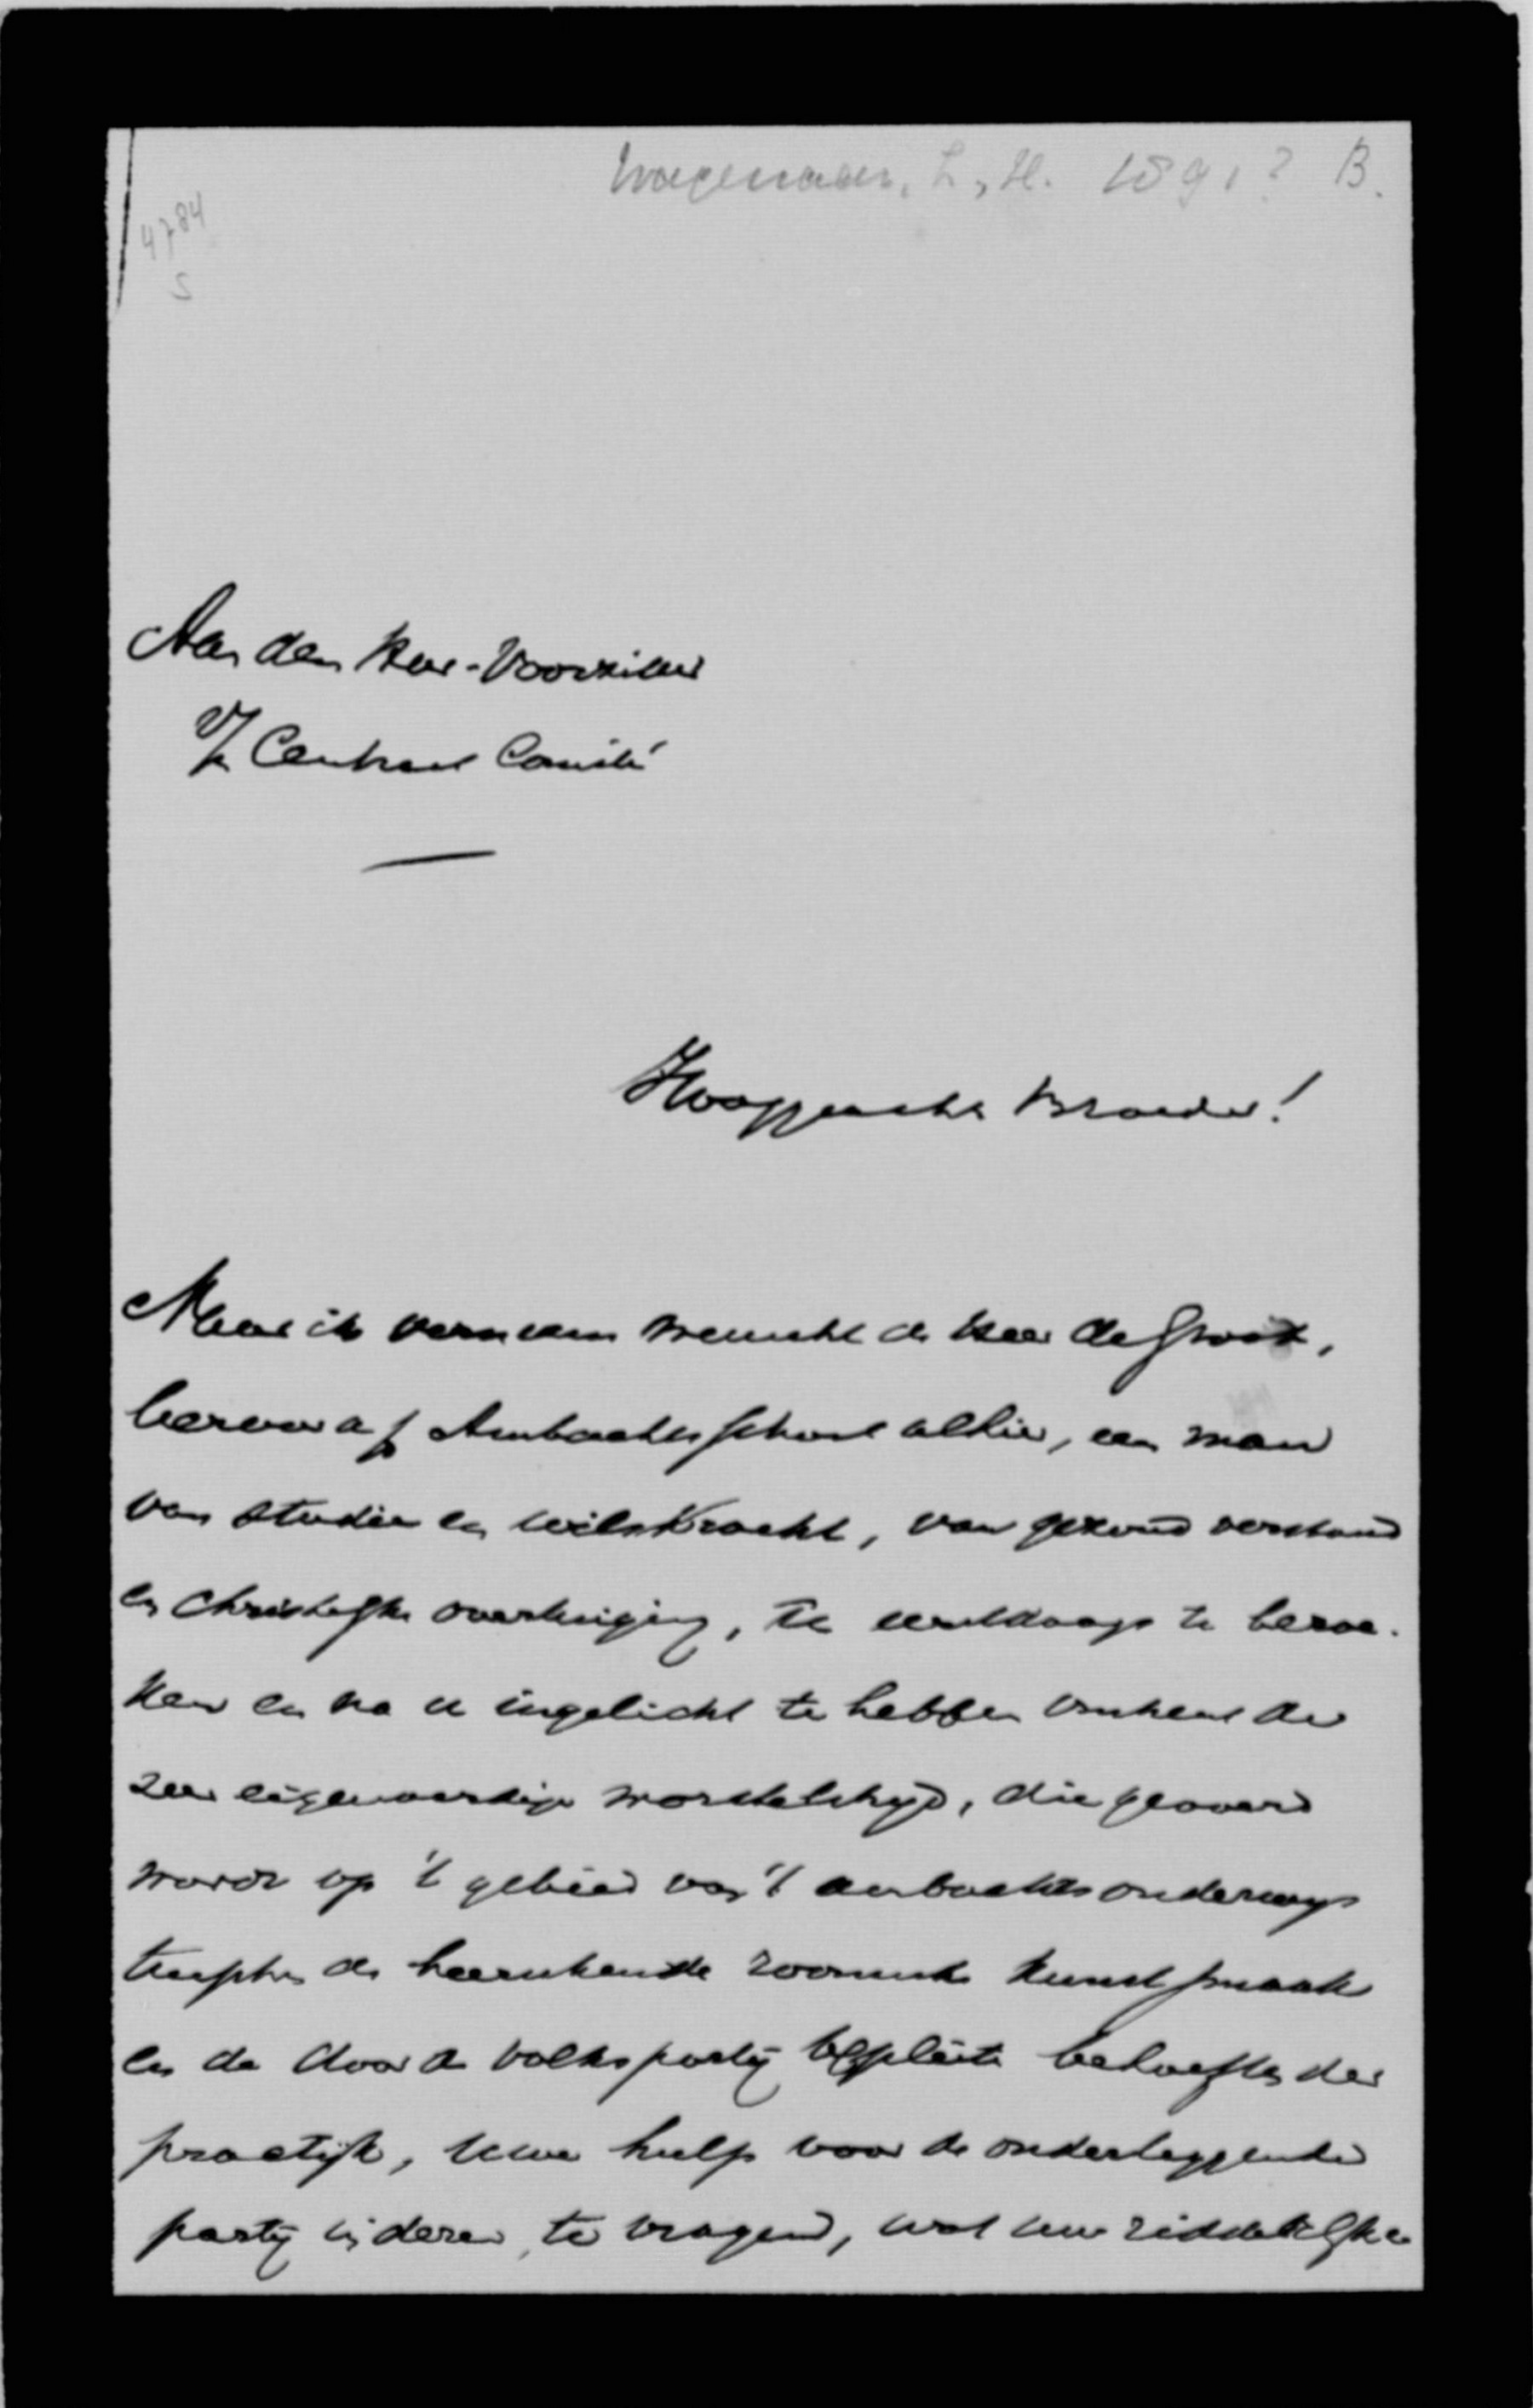 Wagenaar, L, H. 1891? B.
4784
5
Aan den Heer-Voorzitter
v/h Centraal Comité
Hooggeachte Broeder!
Naar ik verneem wenscht de Heer de Groot,
leeraar a/d Ambachtsschool alhier, een man
van studie en wilskracht, van gezond verstand
en christelijke overtuiging, U eerstdaags te bezoe-
ken en na u ingelicht te hebben omtrent den
zeer eigenaardige worstelstrijd, die gevoerd
wordt op 't gebied van 't ambachtsonderwijs
tusschen de heerschende roomsche kunstsmaak
en de door de volkspartij bepleite behoeften der
practijk, Uwe hulp voor de onderleggende
partij in dezen te vragen, wat uw ridderlijken